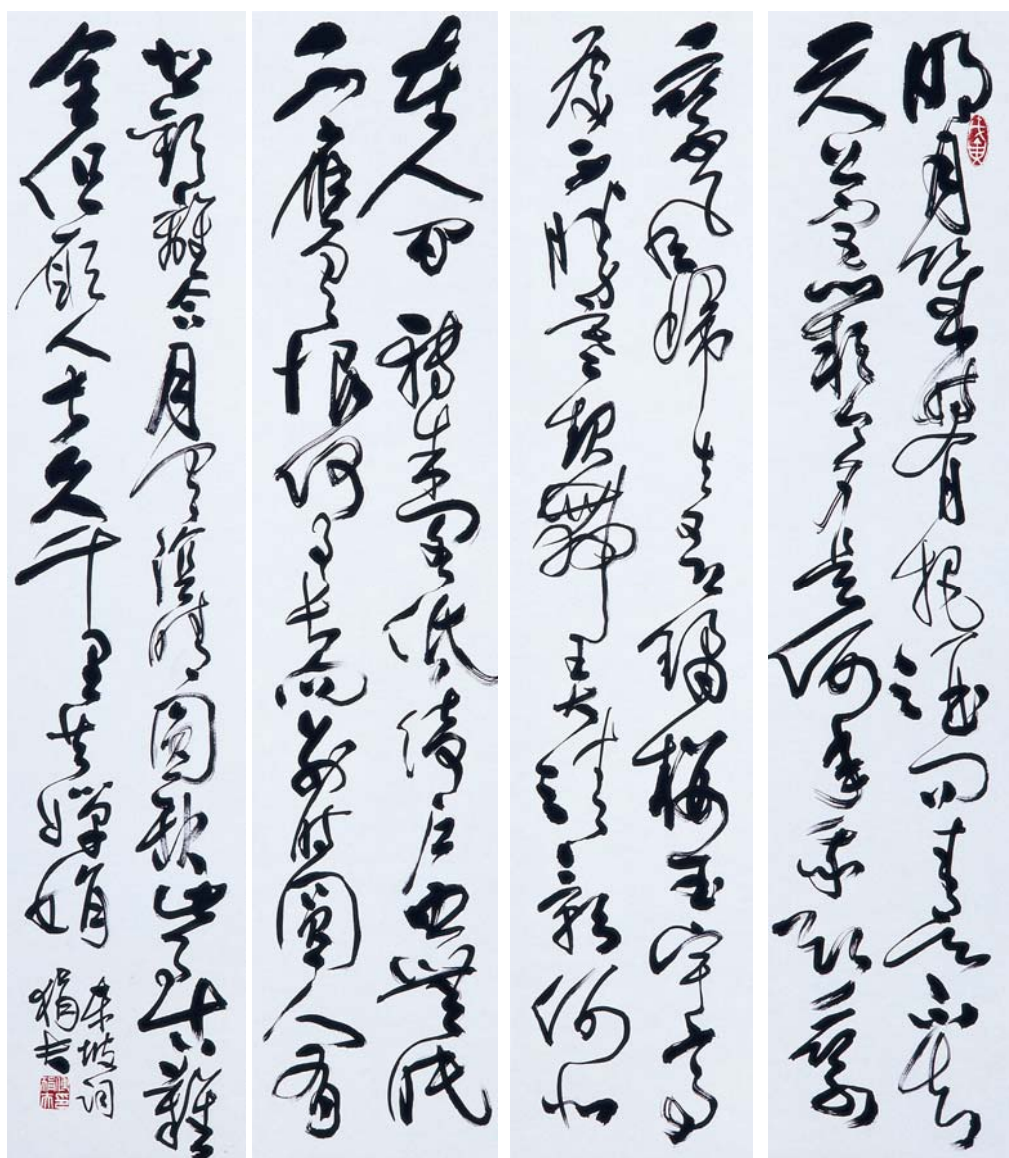 明月幾時有把酒問青天不知
天上宮闕今夕是何年我欲
乘風歸去又恐瓊樓玉宇高
處不勝寒起舞弄清影何似
在人間轉朱閣低綺戶照無眠
不應有恨何事長向別時圓人有
悲歡離合月有陰晴圓缺此事古難
全但願人長久千里共嬋娟
東坡詞